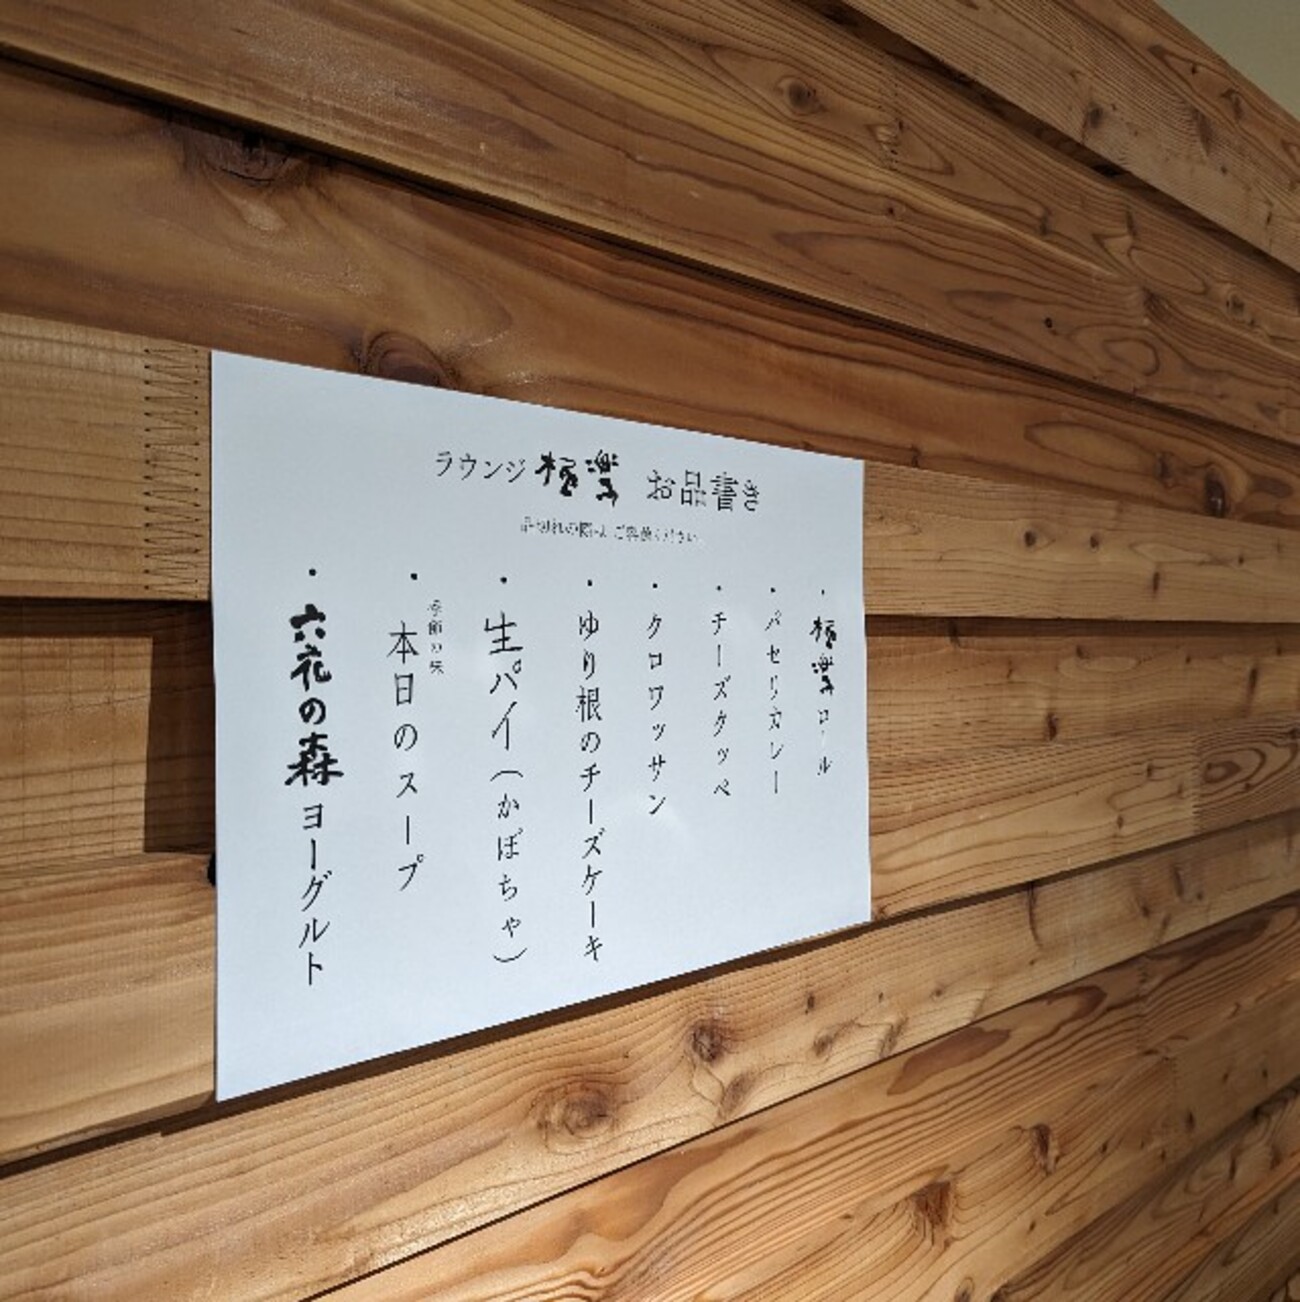 ラウンジ 極楽 お品書き
品切れの際は、ご容赦ください。
・極楽ロール
・パセリカレー
・チーズクッペ
・クロワッサン
・ゆり根のチーズケーキ
・生パイ(かぼちゃ)
季節の味
・本日のスープ
・六花の森ヨーグルト